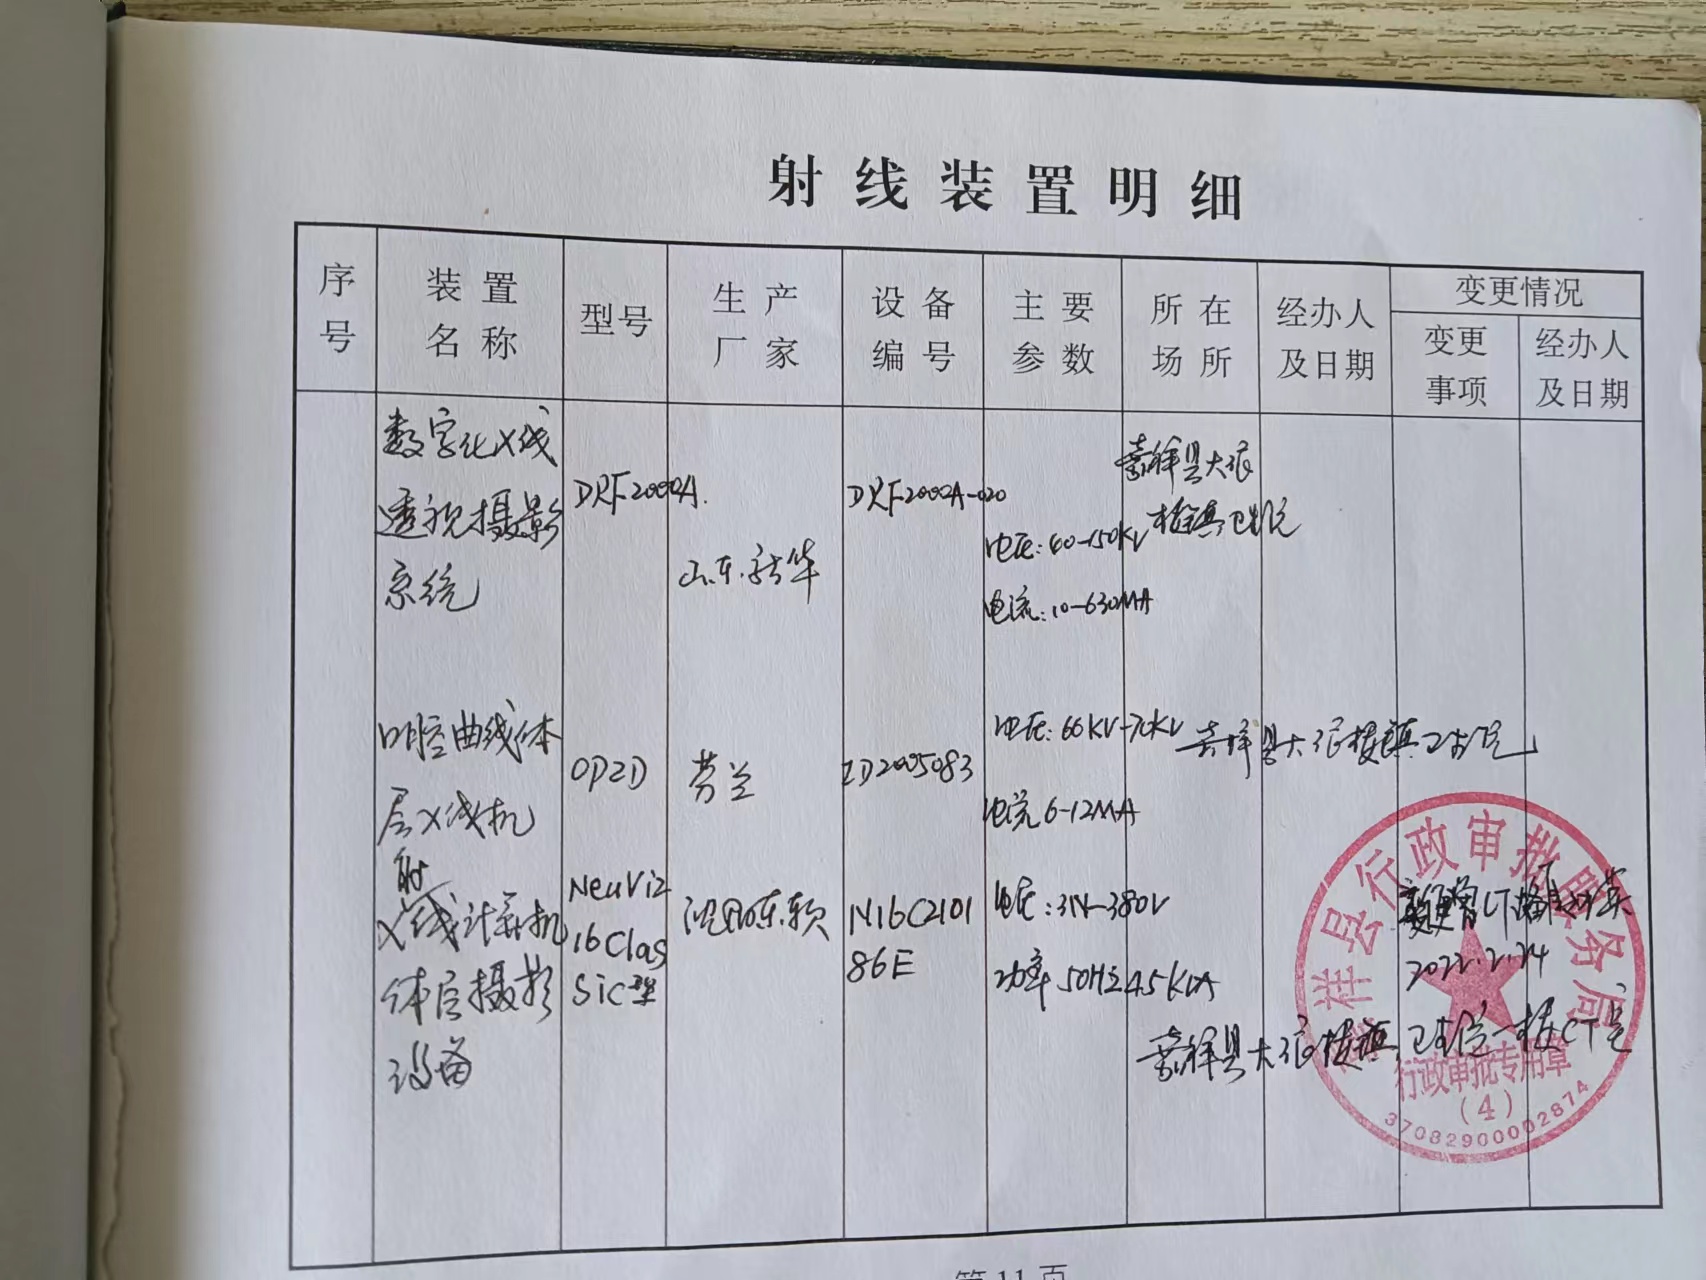 射线装置明细
序号
装置名称
型号
生产厂家
设备编号
主要参数
所在场所
经办人及日期
变更情况
变更事项
经办人及日期
数字化X线
透视摄影
系统
DRF2000A
山东新华
DRF2000A-020
电压:40-150KV
电流:10-630MA
嘉祥县大张
楼镇卫生院
口腔曲线体
层X线机
OP2D
芬兰
电压:60KV-70KV
电流6-12MA
嘉祥县大张楼镇卫生院
X射线计算机
体层摄影
设备
NeuViz
16Clas
sic型
沈阳东软
N16C2101
86E
380V
功率50HZ45KVA
嘉祥县大张楼镇卫生院一楼CT室
2022.2.24
嘉祥县行政审批服务局
行政审批专用章
(4)
37082900002874
第11页